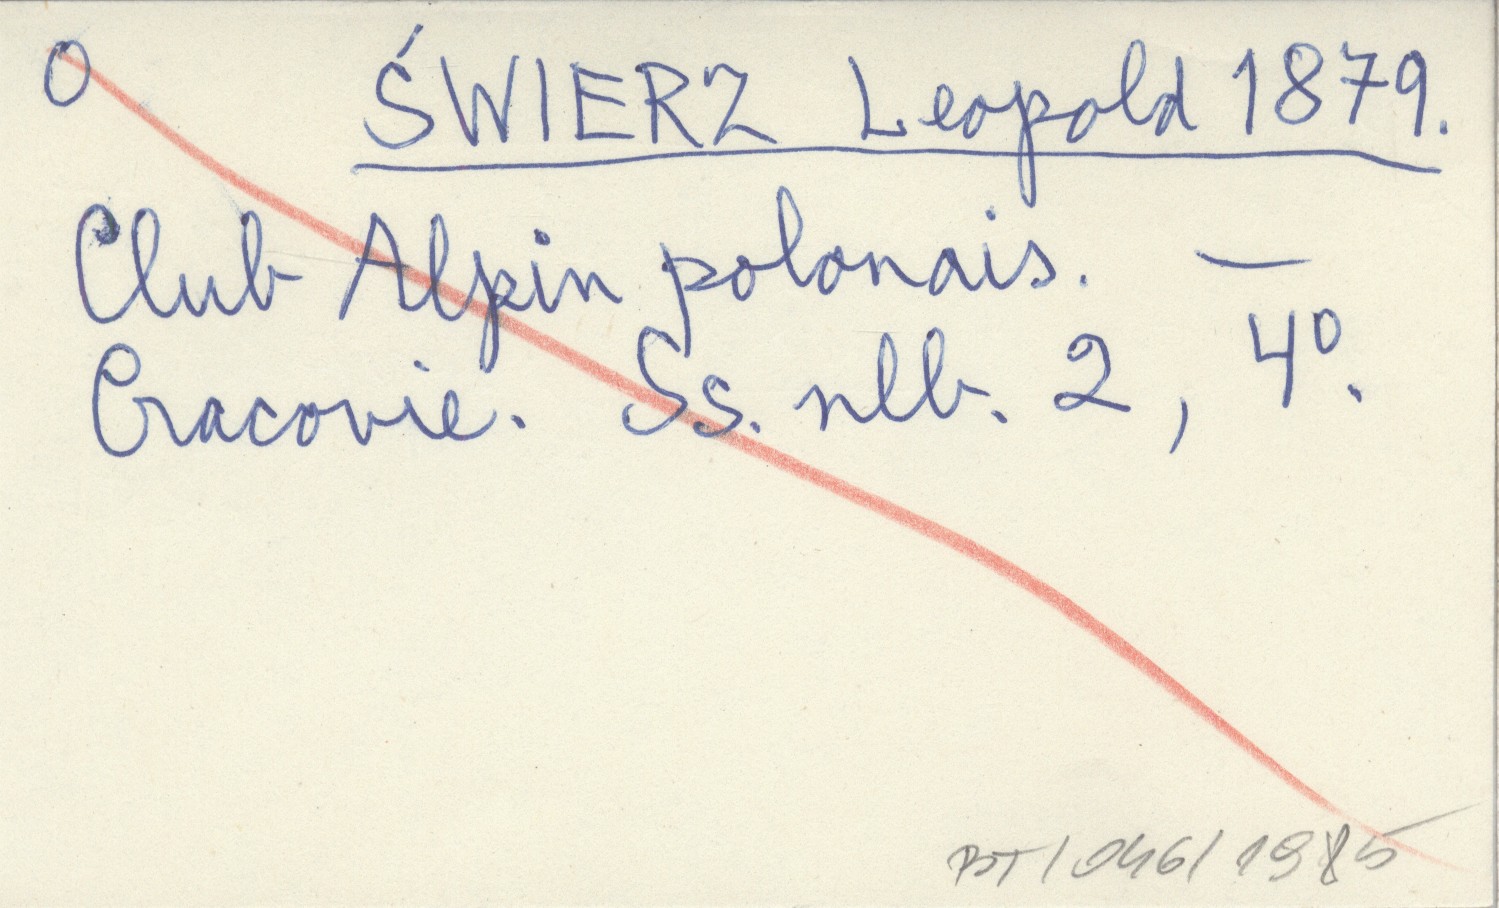 O ŚWIERZ Leopold 1879.
Club Alpin polonais. —
Cracovie. Ss. nlb. 2, 4º.
BT/046/1985